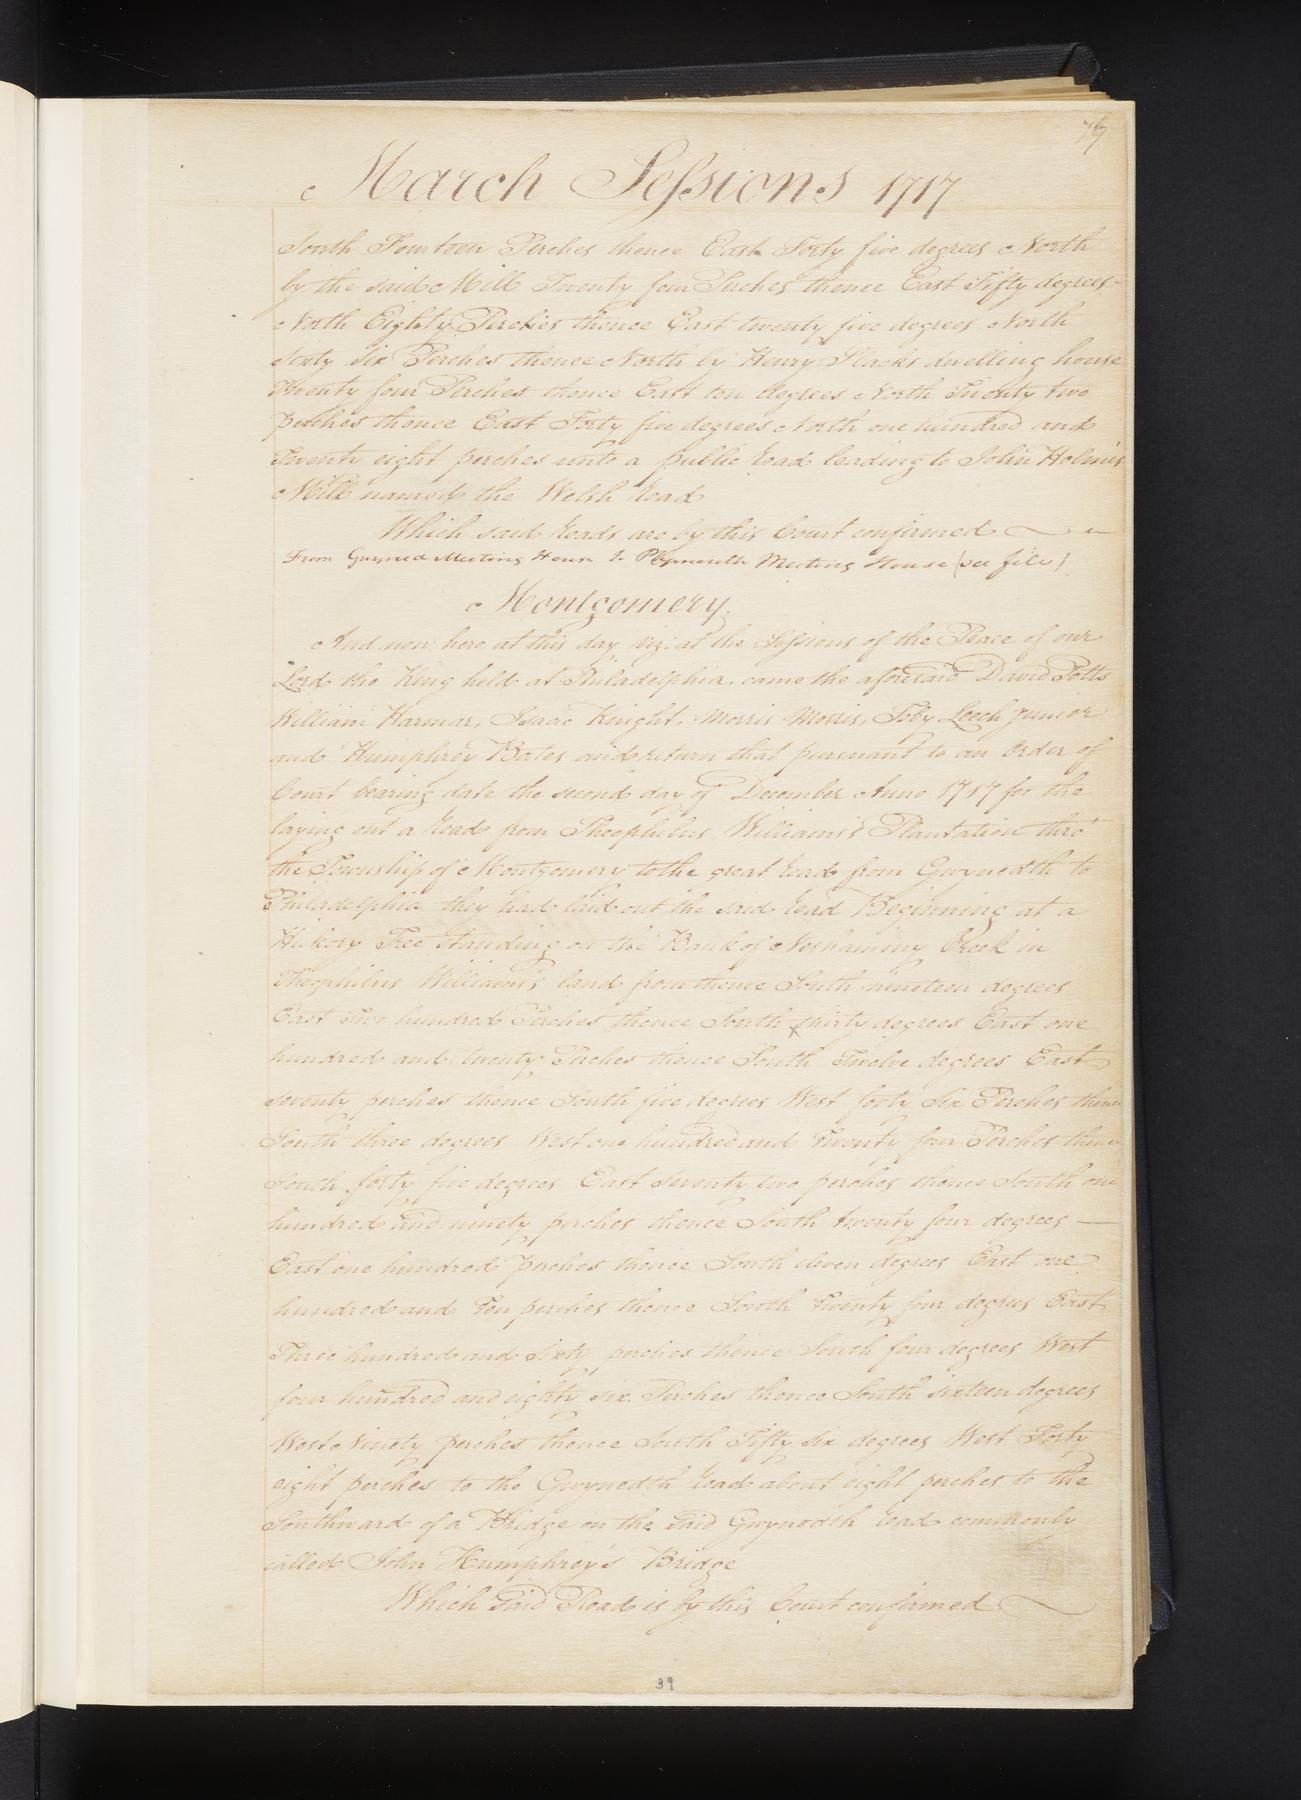 77
March Sessions 1717
South Fourteen Perches thence East Forty five degrees North
by the said Mill Twenty four Perches thence East Fifty degrees
North Eighty Perches thence East twenty five degrees North
Sixty Six Perches thence North by Henry Slack's dwelling house
Twenty four Perches thence East ten degrees North Twenty two
perches thence East Forty five degrees North one hundred and
Twenty eight perches unto a public Road leading to John Holmes
Mill named the Welsh Road
Which said Roads are by this Court confirmed
From Gwyned Meeting House to Plymouth Meeting House (see file)
Montgomery.
And now here at this day viz: at the Sessions of the Peace of our
Lord the King held at Philadelphia, came the aforesaid David Potts
William Harmar, Isaac Knight, Morris Morris, Toby Leech Junior
and Humphrey Bates and return that pursuant to an Order of
Court bearing date the second day of December Anno 1717 for the
laying out a Road from Theophilus Williams's Plantation thro'
the Township of Montgomery to the great Road from Gwynedth to
Philadelphia they had laid out the said Road Beginning at a
Hickory Tree standing on the Bank of Neshaminy Creek in
Theophilus Williams's land from thence South nineteen degrees
East Two hundred Perches thence South thirty degrees East one
hundred and twenty Perches thence South Twelve degrees East
seventy perches thence South five degrees West forty Six Perches thence
South three degrees West one hundred and Twenty four Perches thence
South forty five degrees East Seventy two perches thence South one
hundred and ninety perches thence South twenty four degrees —
East one hundred perches thence South eleven degrees East one
hundred and Ten perches thence South Twenty four degrees East
Three hundred and Sixty perches thence South four degrees West
four hundred and eighty six Perches thence South sixteen degrees
West Ninety perches thence South Fifty Six degrees West Forty
eight perches to the Gwynedth Road about eight perches to the
Southward of a Bridge on the said Gwynedth Road commonly
called John Humphrey's Bridge
Which said Road is by this Court confirmed
39